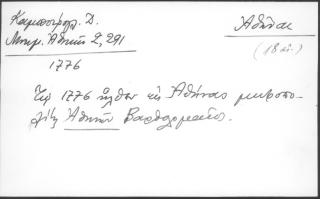 Καμπούρογλ. Δ.
Ἀθῆναι
Μνημ. Ἀθην. 2, 291
(18 αἰ.)
1776
Τῷ 1776 ἦλθεν εἰς Ἀθήνας μητροπο-
λίτης Ἀθηνῶν Βαρθολομαῖος.